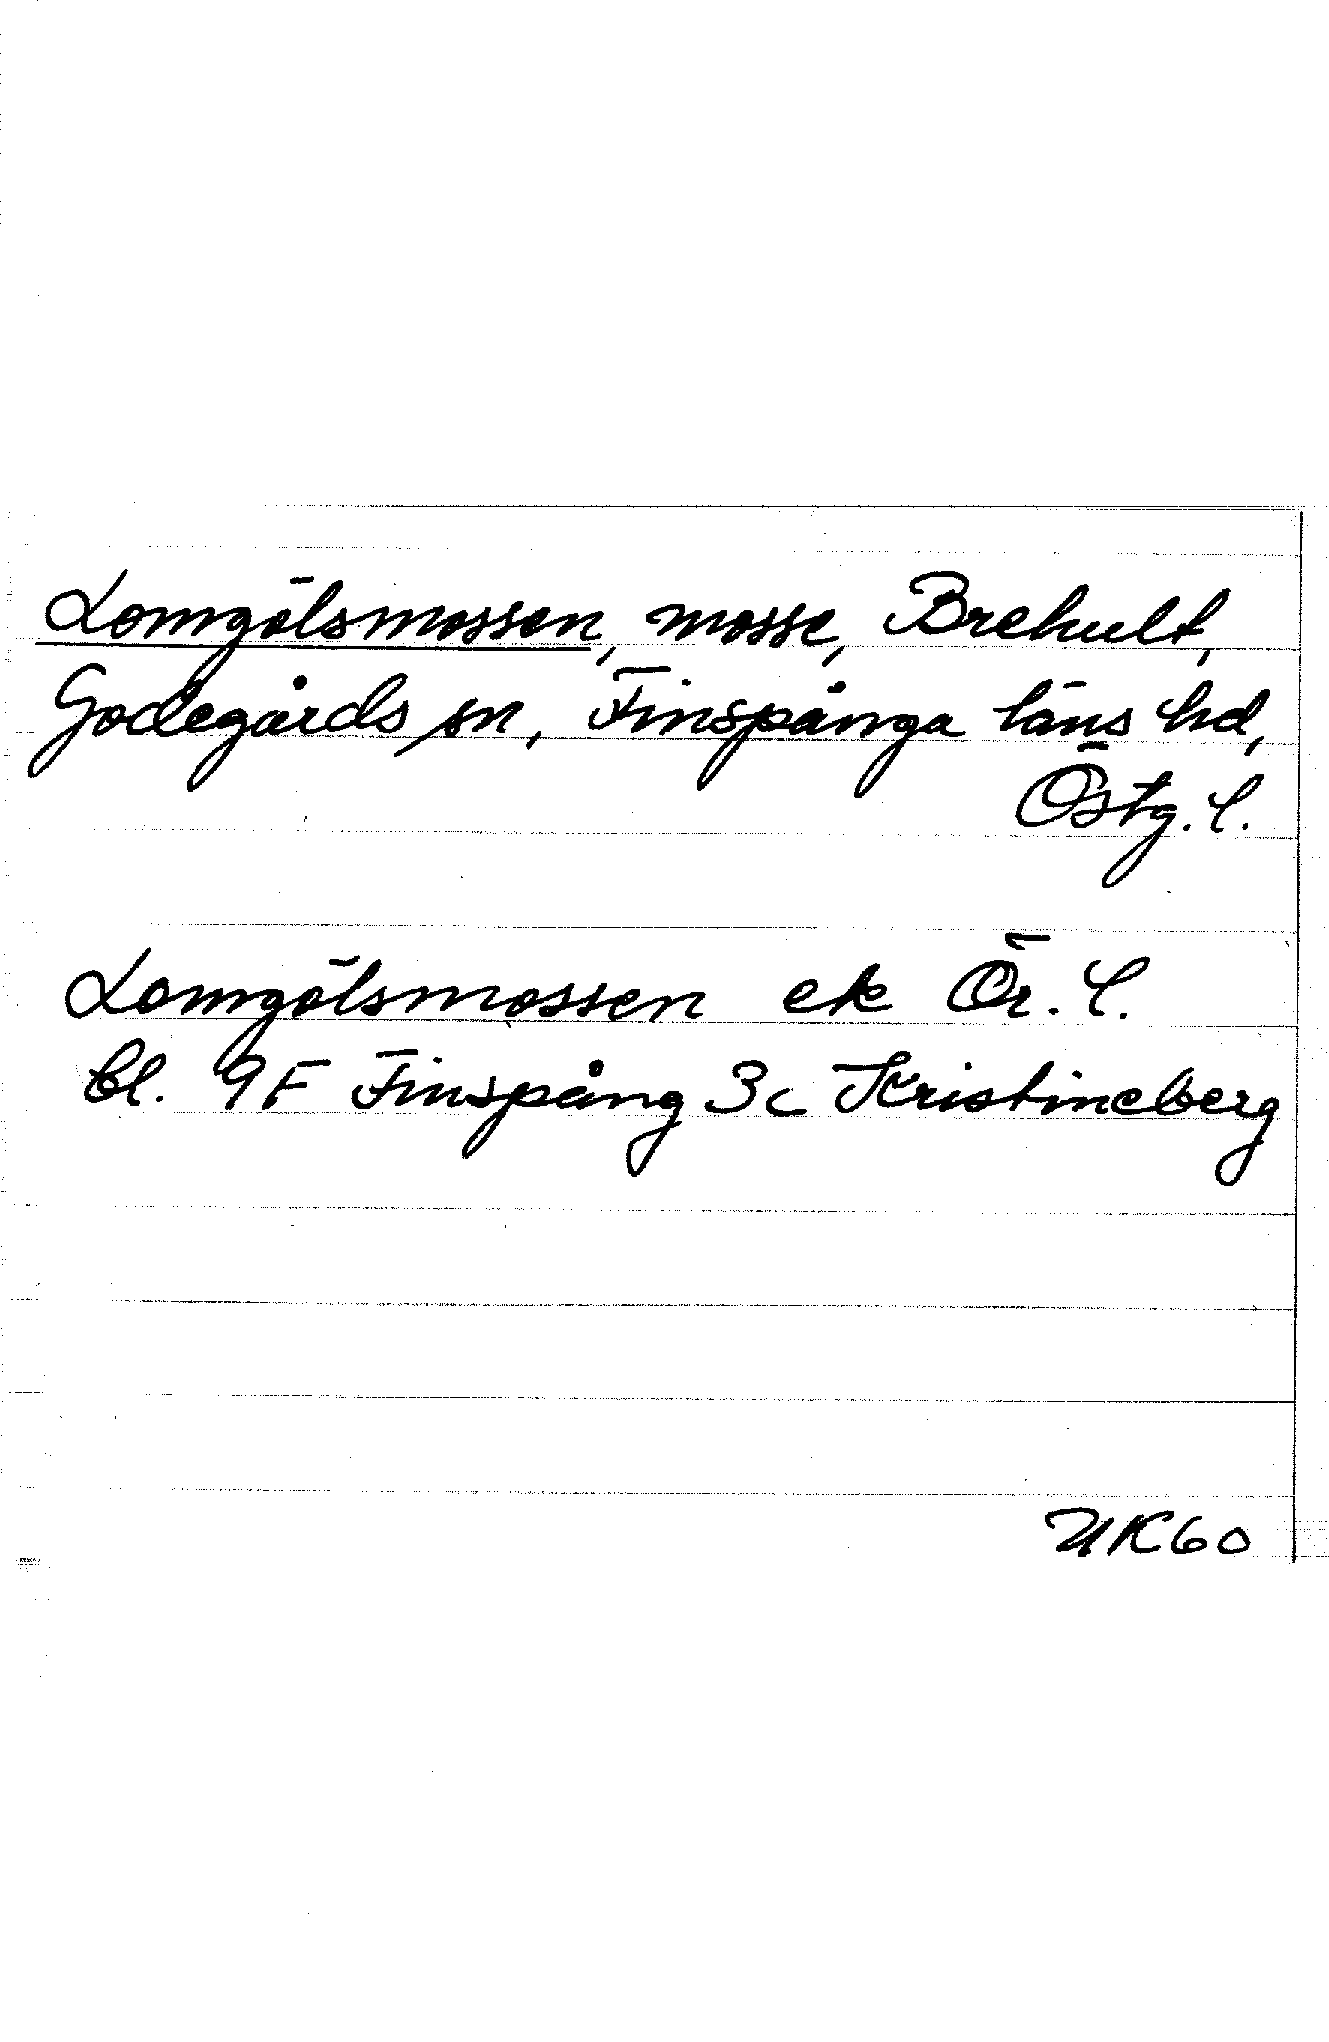 Lomgölsmossen, mosse, Brehult,
Godegårds sn, Finspånga läns hd,
Östg. l.
Lomgölsmossen ek Ör. l.
bl. 9F Finspång 3c Kristineberg
UK60